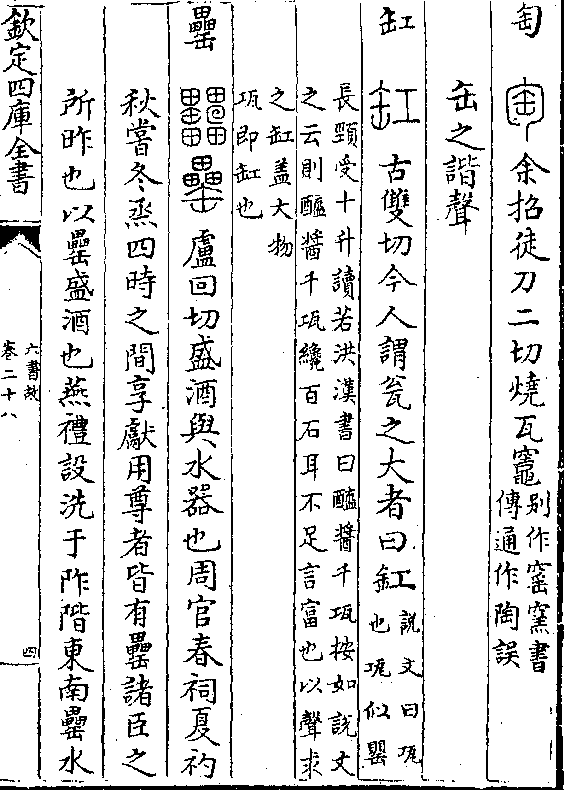 匋 余招徒刀二切燒瓦竈别作窑窯書傳通作陶誤
缶之諧聲
缸 缸 古雙切今人謂瓮之大者曰缸説文曰瓨也瓨似罌
長頸受十升讀若洪漢書曰醯醬千瓨按如説文
之云則醯醬千瓨纔百石耳不足言富也以聲求
之缸盖大物
瓨即缸也
罍 盧回切盛酒與水器也周官春祠夏禴
秋嘗冬烝四時之間享獻用尊者皆有罍諸臣之
所昨也以罍盛酒也燕禮設洗于阼階東南罍水
欽定四庫全書
六書故
卷二十八
四